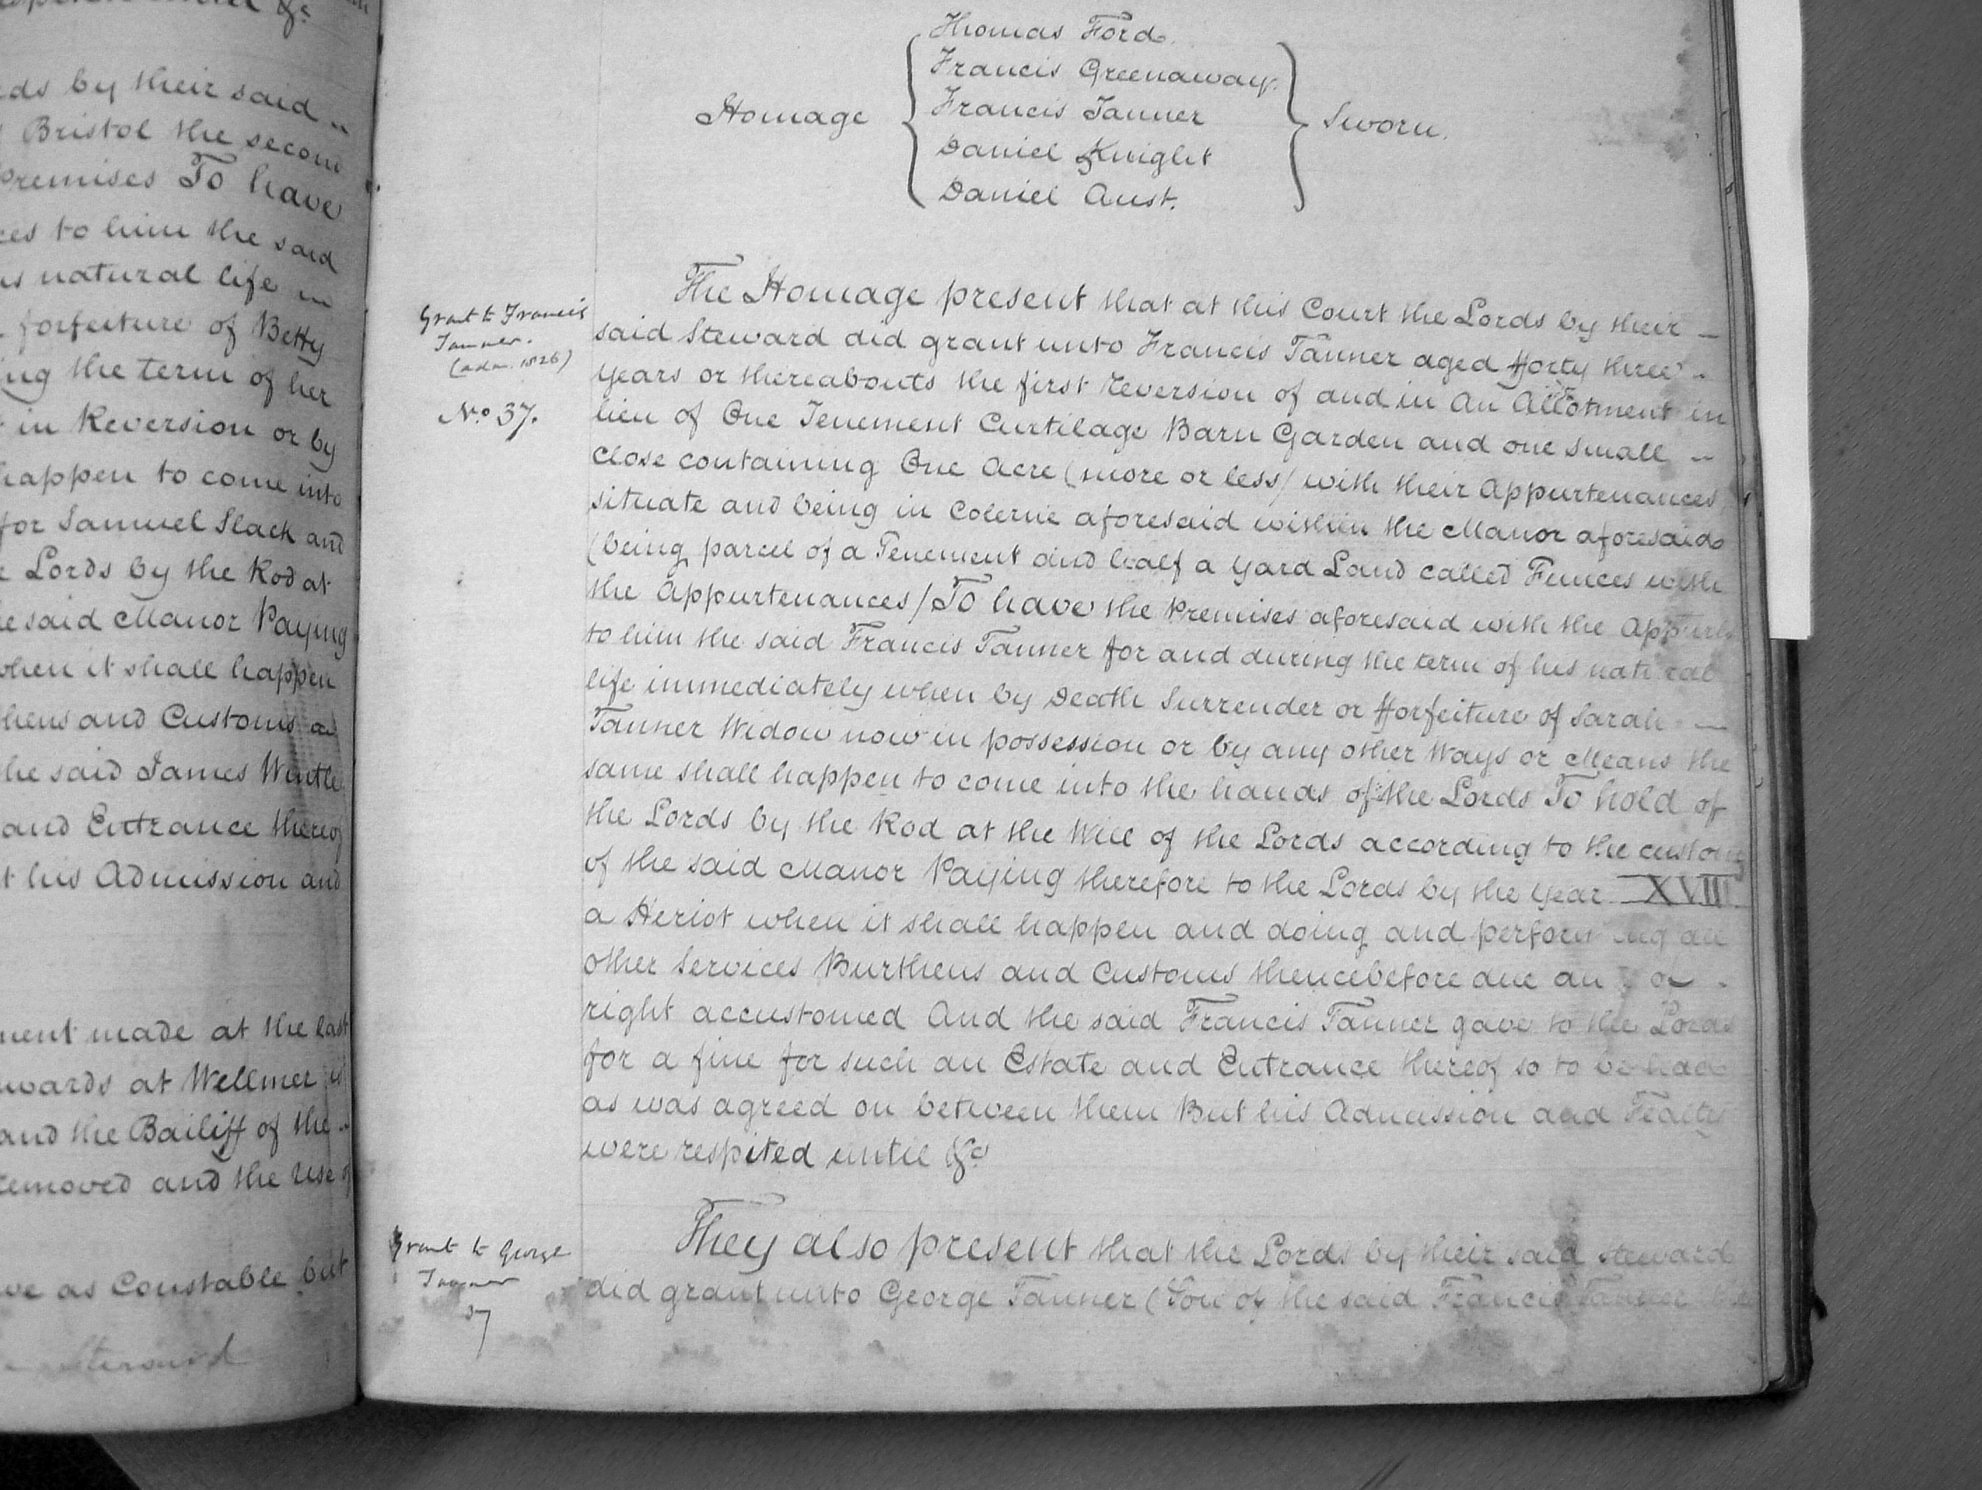 ds by their said
Bristol the second
premises To have
ces to him the said
is natural life
forfeiture of Betty
ng the term of her
in Reversion or by
happen to come into
for Samuel Slack and
Lords by the Rod at
e said Manor Paying
when it shall happen
thens and Customs
he said James Wintle
and Entrance thereof
t his Admission and
ment made at the last
wards at Wellmer
and the Bailiff of the
removed and the use of
ve as Constable but
Homage
Thomas Ford.
Francis Greenaway.
Francis Tanner
Daniel Knight
Daniel Aust.
Sworn.
Grant to Francis
Tanner.
(adm. 1826)
No. 37.
The Homage present that at this Court the Lords by their
said Steward did grant unto Francis Tanner aged fforty three
years or thereabouts the first reversion of and in An Allotment in
lieu of One Tenement Curtilage Barn Garden and one small
close containing One Acre (more or less) with their Appurtenances
situate and being in Colerne aforesaid within the Manor aforesaid
(being parcel of a Tenement and half a yard Land called Fences with
the Appurtenances) To have the Premises aforesaid with the Appurts
to him the said Francis Tanner for and during the term of his natural
life immediately when by Death Surrender or fforfeiture of Sarah
Tanner Widow now in possession or by any other Ways or Means the
same shall happen to come into the hands of the Lords To hold of
the Lords by the Rod at the Will of the Lords according to the custom
of the said Manor Paying therefore to the Lords by the Year XVIII
a Heriot when it shall happen and doing and performing all
other Services Burthens and Customs thencebefore due an or
right accustomed And the said Francis Tanner gave to the Lords
for a fine for such an Estate and Entrance thereof so to be had
as was agreed on between them But his Admission and Fealty
were respited until &c
Grant to George
Tanner
37
They also present that the Lords by their said Steward
did grant unto George Tanner (Son of the said Francis Tanner